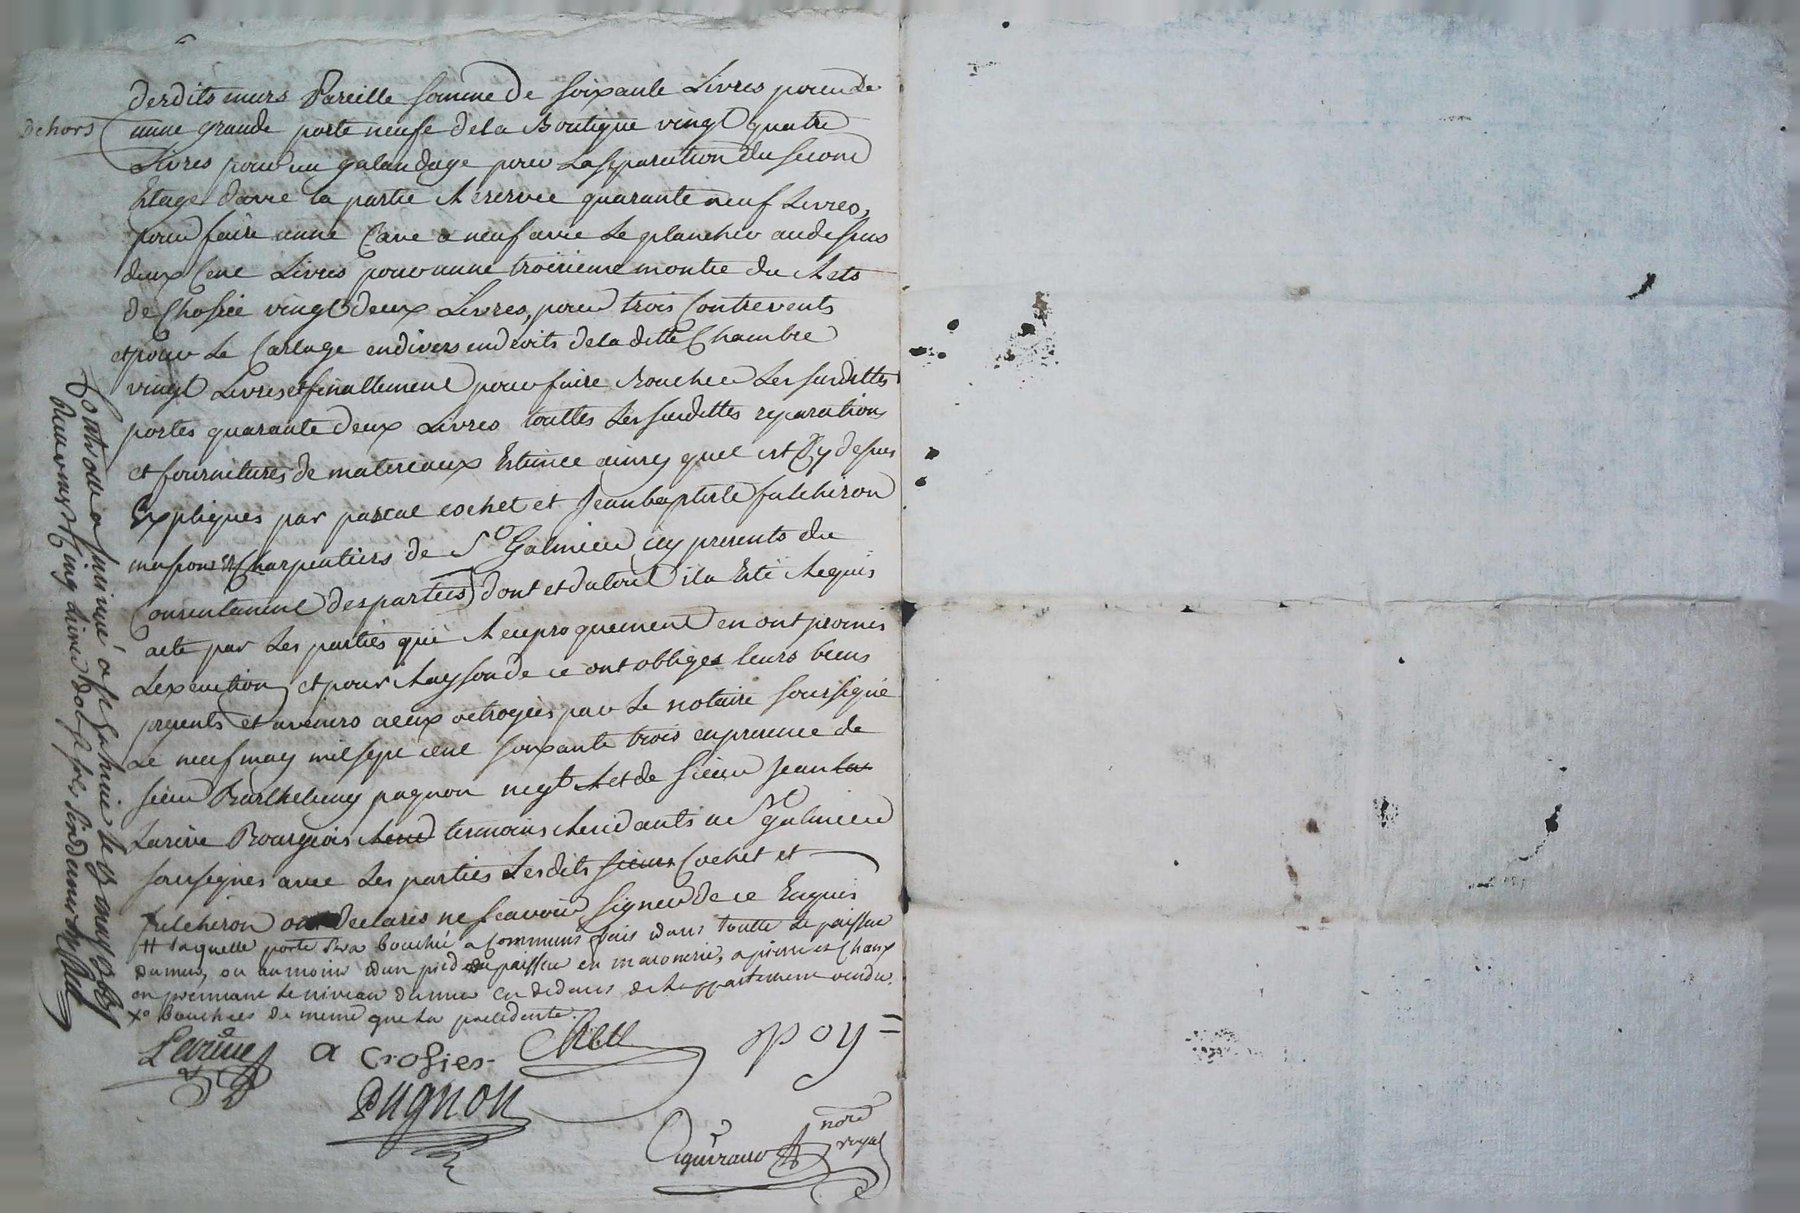 desdits murs Pareille somme de soixante Livres pour de
Dehors
unne grande porte neufe de la Boutique vingt quatre
Livres pour un galandage pour La separation du second
Etage davec la partie Reservée quarante neuf Livres,
pour faire unne Cave a neuf avec Le plancher audessus
deux Cent Livres pour unne troisieme montée du Rets
de Chosséé vingt deux Livres, pour trois Contrevents
et pour Le Carlage endivers endroits de la ditte Chambre
vingt Livres et finallement pour faire Boucher Les susdittes
portes quarante deux Livres touttes Les susdittes reparations
et fournitures de matereaux Estimée ainsy quel est Cy dessus
Expliqués par pascal cochet et Jean baptiste fulchiron
massons et Charpentiers de St Galmier icy presents du
Consentement des parties dont et du tout il a Eté Requis
acte par Les parties qui Reciproquement en ont promis
Lexecution et pour Raysonde ce ont obligés leurs biens
presents et avenirs a eux octroyés par Le notaire soussigné
Le neuf may mil sept cent soixante trois en presence de
sieur Barthelemy pagnon negt et de sieur Jean
Larive Bourgeois temoins Residants a St galmier
soussignés avec Les parties Lesdits Cochet et
fulchiron ont declarés ne scavoir signer de ce Enquis
# laquelle porte sera bouchée a Communs frais dans toutte Lepaisseur
dumur, ou aumoins dun pied depaisseur en maconnerie, a pierre et Chaux
en prennant Le niveau dumur en dedans de Lappartement vendu.
Xo Bouchées de meme que La precedente.
Larive a Crosies Poy
Pagnon
nore
royal
Controllé a St Galmier le 19 may 1763